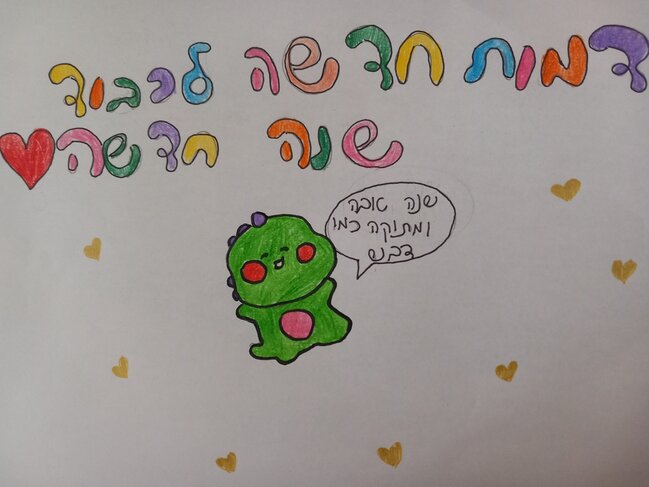 דמות חדשה לכבוד
שנה חדשה
שנה טובה
ומתוקה כמו
דבש